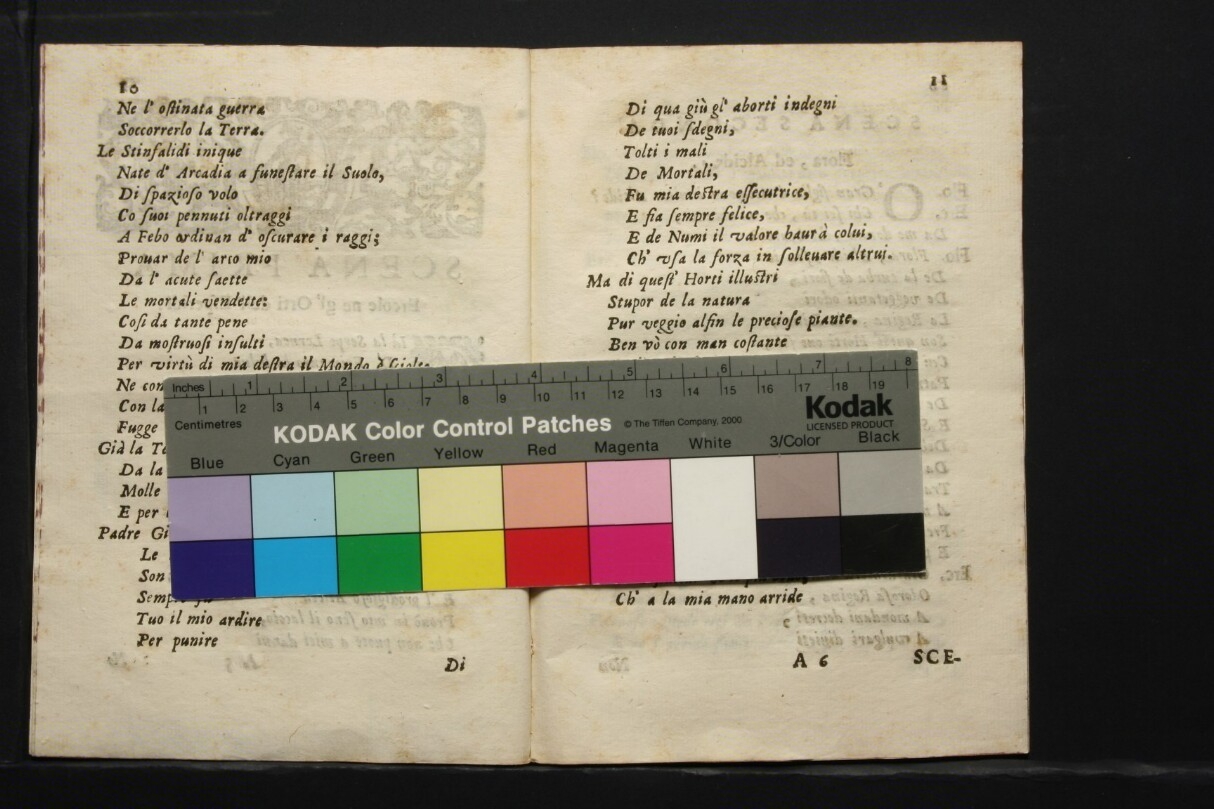 10
Ne l' ostinata guerra
Soccorrerlo la Terra.
Le Stinfalidi inique
Nate d' Arcadia a funeſtare il Suolo,
Di ſpazioſo volo
Co ſuoi pennuti oltraggi
A Febo ardinan d' oſcurare i raggi;
Prouar de l' arco mio
Da l' acute ſaette
Le mortali vendette:
Coſi da tante pene
Da moſtruoſi inſulti
Per virtù di mia deſtra il Mondo è
Ne con
Con la
Fugge
Già la
Da la
Molle
E per
Padre
Le
Son
Tuo il mio ardire
Per punire
Di
11
Di qua giù gl' aborti indegni
De tuoi ſdegni,
Tolti i mali
De Mortali,
Fu mia deſtra eſſecutrice,
E ſia ſempre felice,
E de Numi il valore haurà colui,
Ch' vſa la forza in ſolleuare altrui.
Ma di queſt' Horti illuſtri
Stupor de la natura
Pur veggio alfin le precioſe piante.
Ben vò con man coſtante
Ch' a la mia mano arride
A 6
SCE-
Inches 1 2 3 4 5 6 7 8
1 2 3 4 5 6 7 8 9 10 11 12 13 14 15 16 17 18 19
Centimetres
KODAK Color Control Patches © The Tiffen Company, 2000
Kodak
LICENSED PRODUCT
Blue Cyan Green Yellow Red Magenta White 3/Color Black